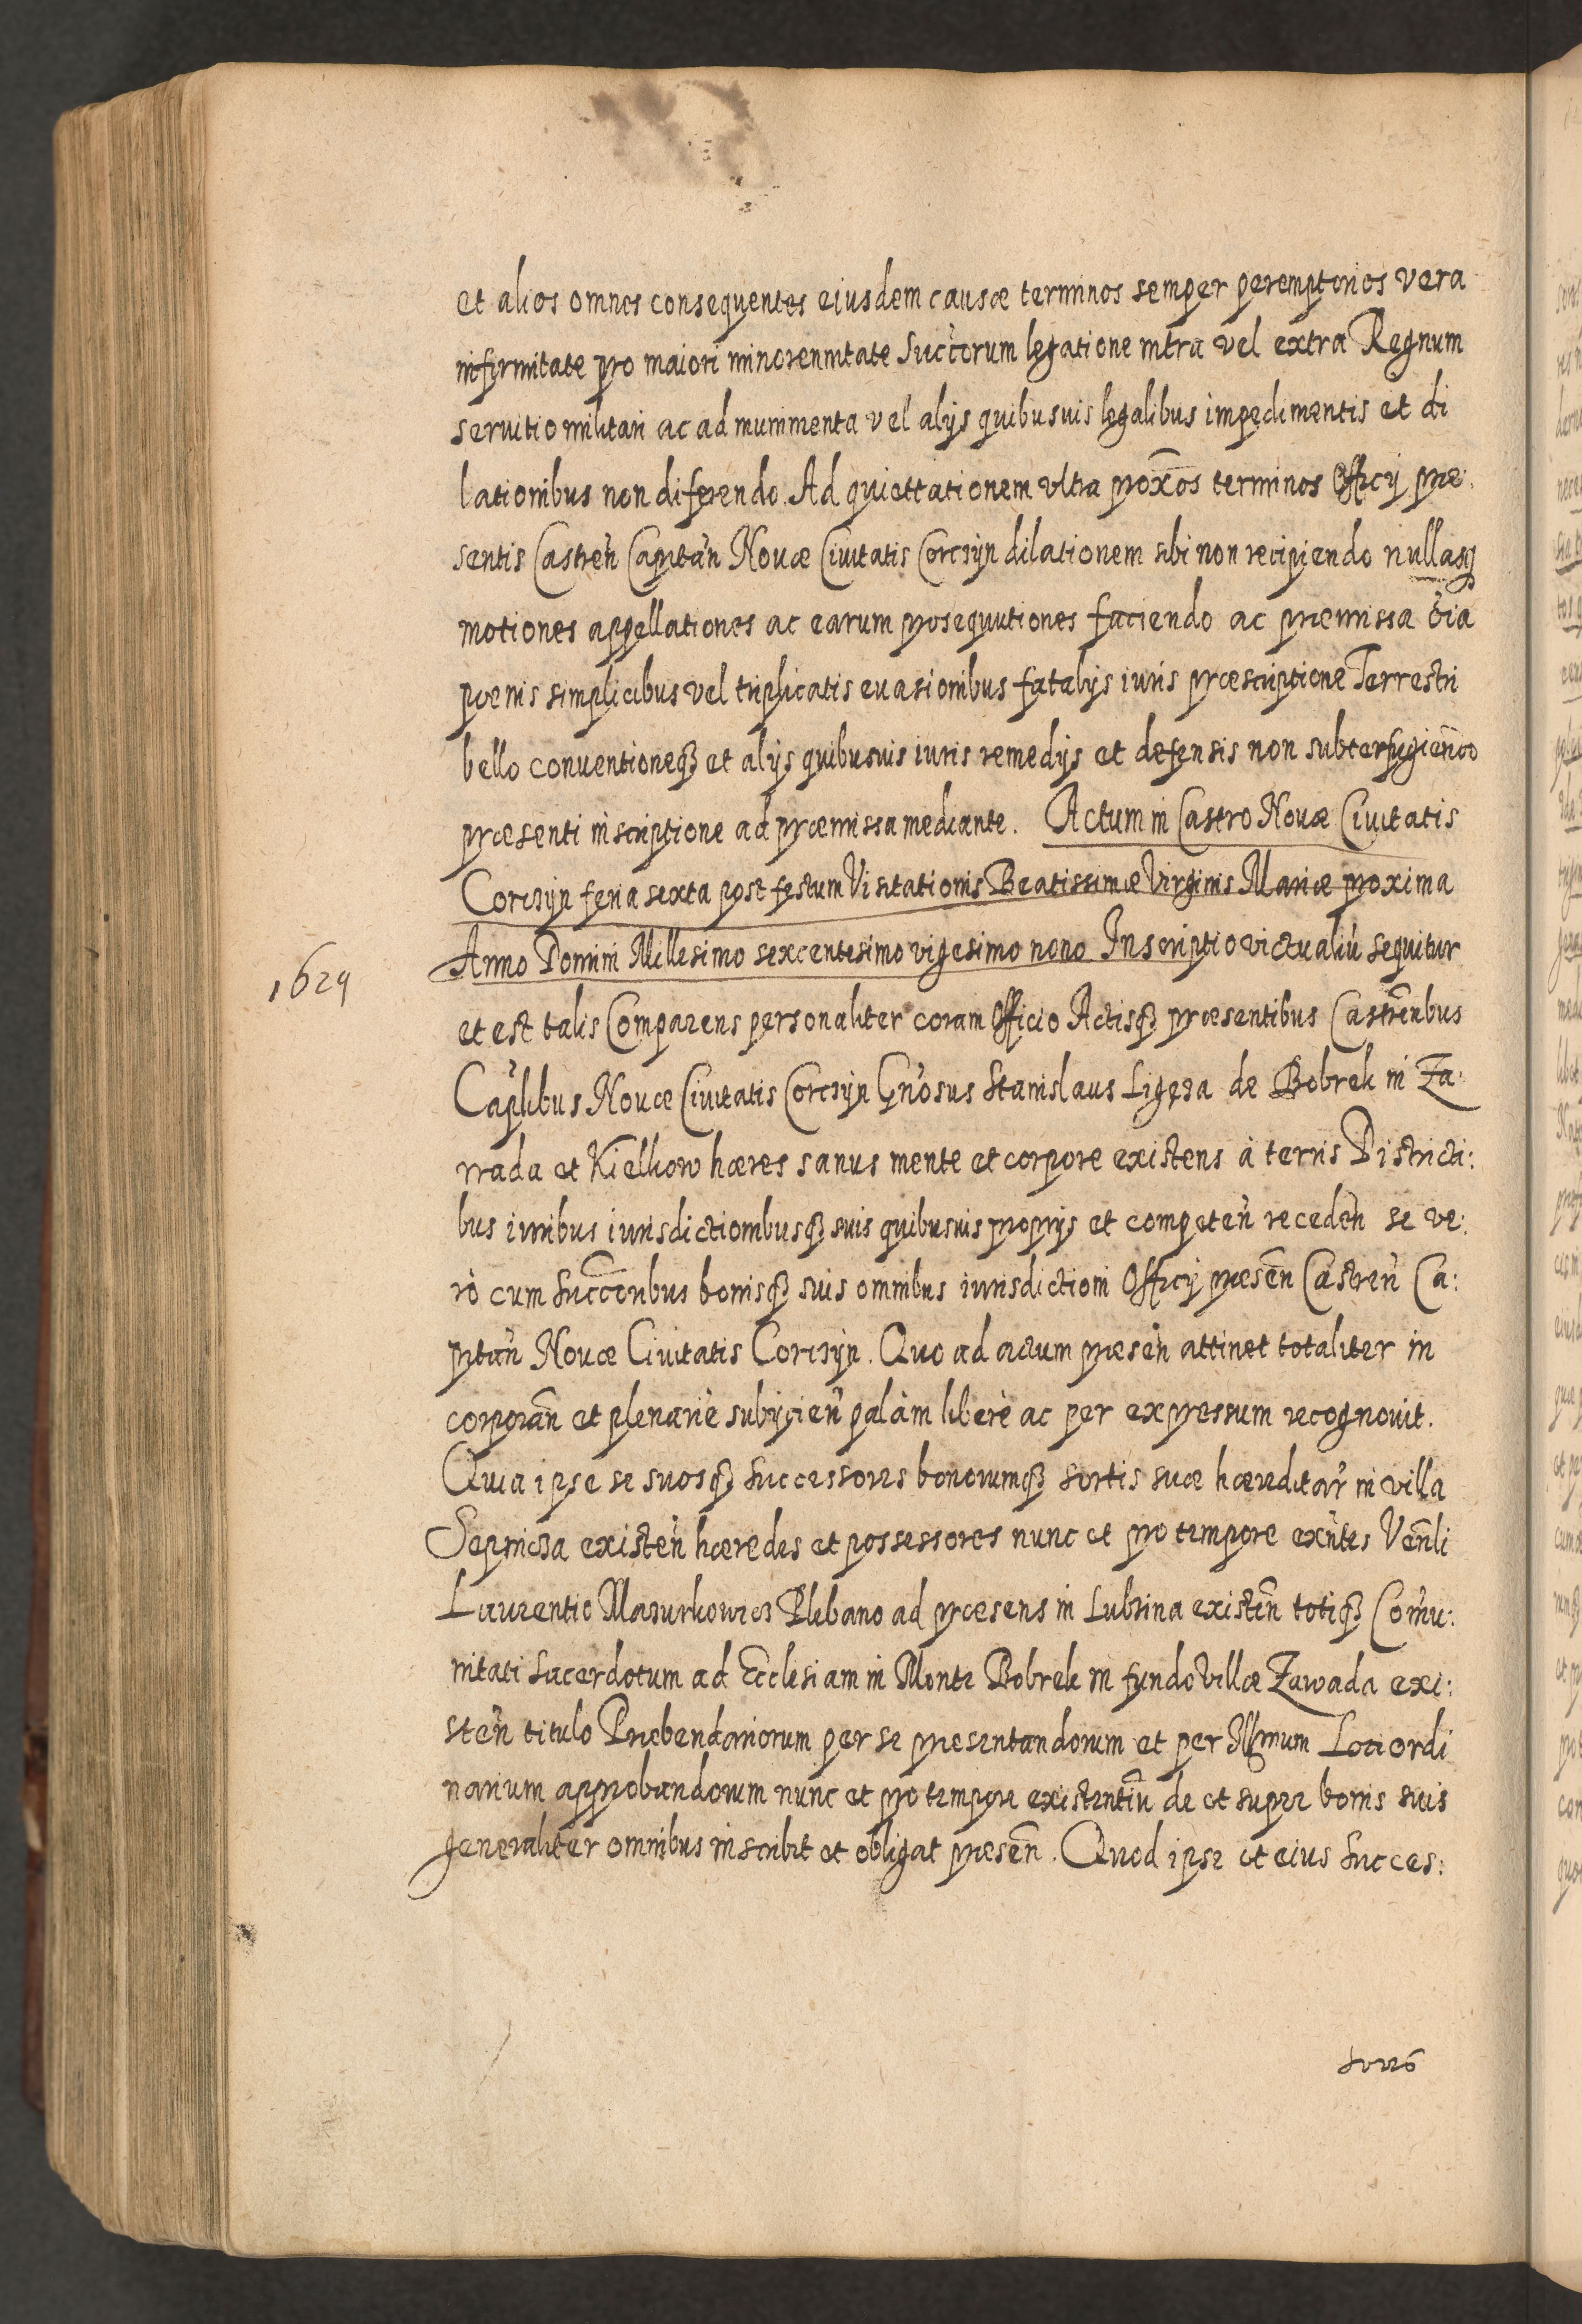 et alios omnes consequentes eiusdem causæ terminos semper peremptorios vera
infirmitate pro maiori minorennitate succorum legatione intra vel extra Regnum
seruitio militari ac ad munimenta vel alijs quibusuis legalibus impedimentis et di
lationibus non diferendo. Ad quiettationem vltra proxos terminos Officij præ:
sentis Castren Capitan Nouæ Ciuitatis Corcsyn dilationem sibi non recipiendo nullasq3
motiones appellationes ac earum prosequutiones faciendo ac præmissa oia
pœnis simplicibus vel triplicatis euasionibus fatalijs iuris præscriptione Terrestri
bello conuentioneq3 et alijs quibusuis iuris remedijs et defensis non subterfugiendo
præsenti inscriptione ad præmissa mediante. Actum in Castro Nouæ Ciuitatis
Corcsyn feria sexta post festum Visitationis Beatissimæ Virginis Mariæ proxima
1629
Anno Domini Millesimo sexcentesimo vigesimo nono Inscriptio victualiu sequitur
et est talis Comparens personaliter coram Officio Actisq3 præsentibus Castrenbus
Caplibus Nouæ Ciuitatis Corcsyn Gnosus Stanislaus Ligęza de Bobrek in Za:
wada et Kielkow hæres sanus mente et corpore existens à terris Districti:
bus iuribus iurisdictionibusq3 suis quibusuis proprijs et competen receden se ve:
rò cum succoribus bonisq3 suis omnibus iurisdictioni Officij præsen Castren Ca:
pitan Nouæ Ciuitatis Corcsyn. Quo ad actum præsen attinet totaliter in
corporan et plenariè subijcien palàm liberè ac per expressum recognouit.
Quia ipse se suosq3 successores bonorumq3 sortis suæ hæreditar in villa
Sepnicza existen hæredes et possessores nunc et pro tempore exntes Venli
Laurentio Mazurkowicz Plebano ad præsens in Lubzina existen totiq3 Comu:
nitati sacerdotum ad Ecclesiam in Monte Bobrek in fundo Villæ Zawada exi:
sten titulo Præbendariorum per se præsentandorum et per Illmum Loci ordi
narium approbandorum nunc et pro tempore existentiu de et super bonis suis
generaliter omnibus inscribit et obligat præsen. Quod ipse et eius succes: